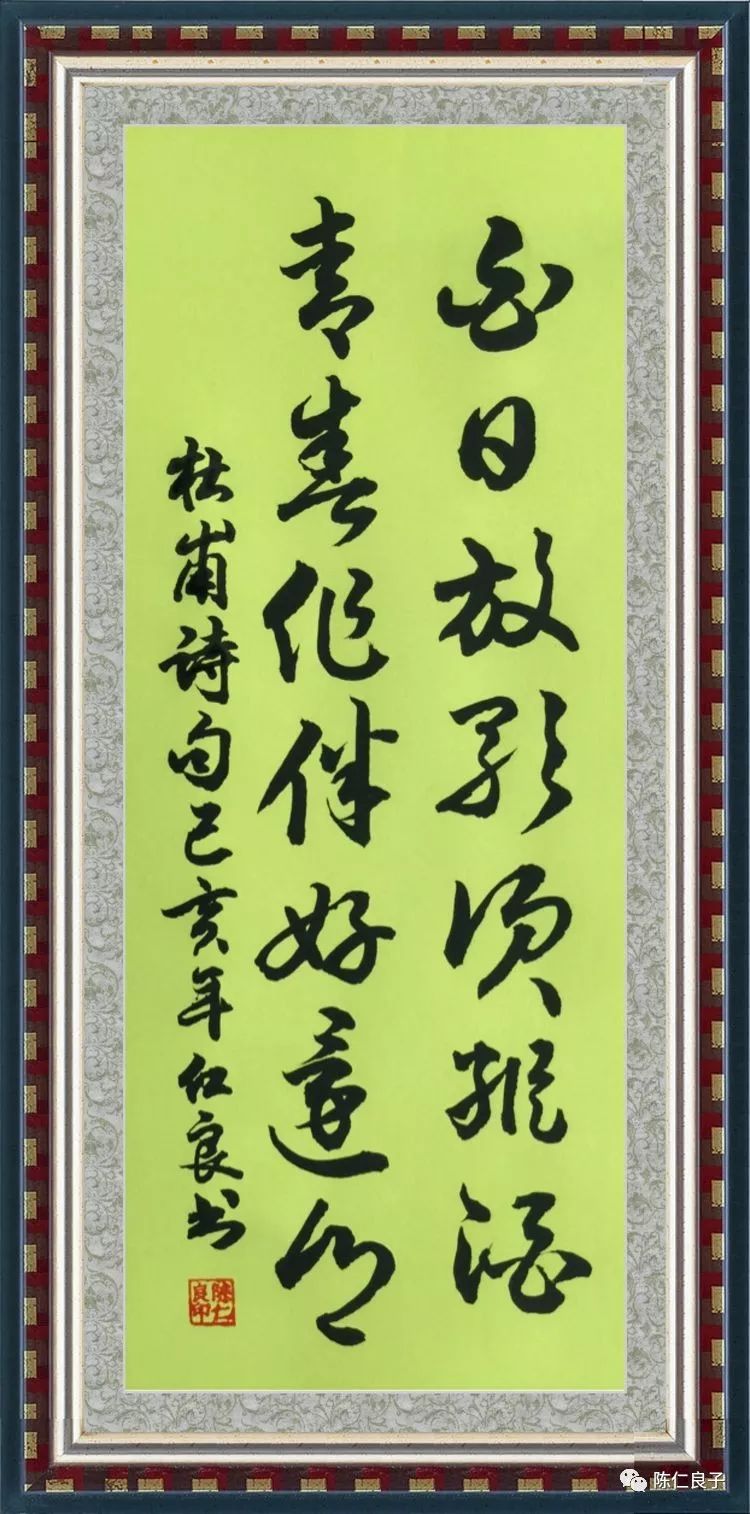 白日放歌须纵酒
青春作伴好還鄉
杜甫詩句己亥年仁良书
陳仁良印
陈仁良子